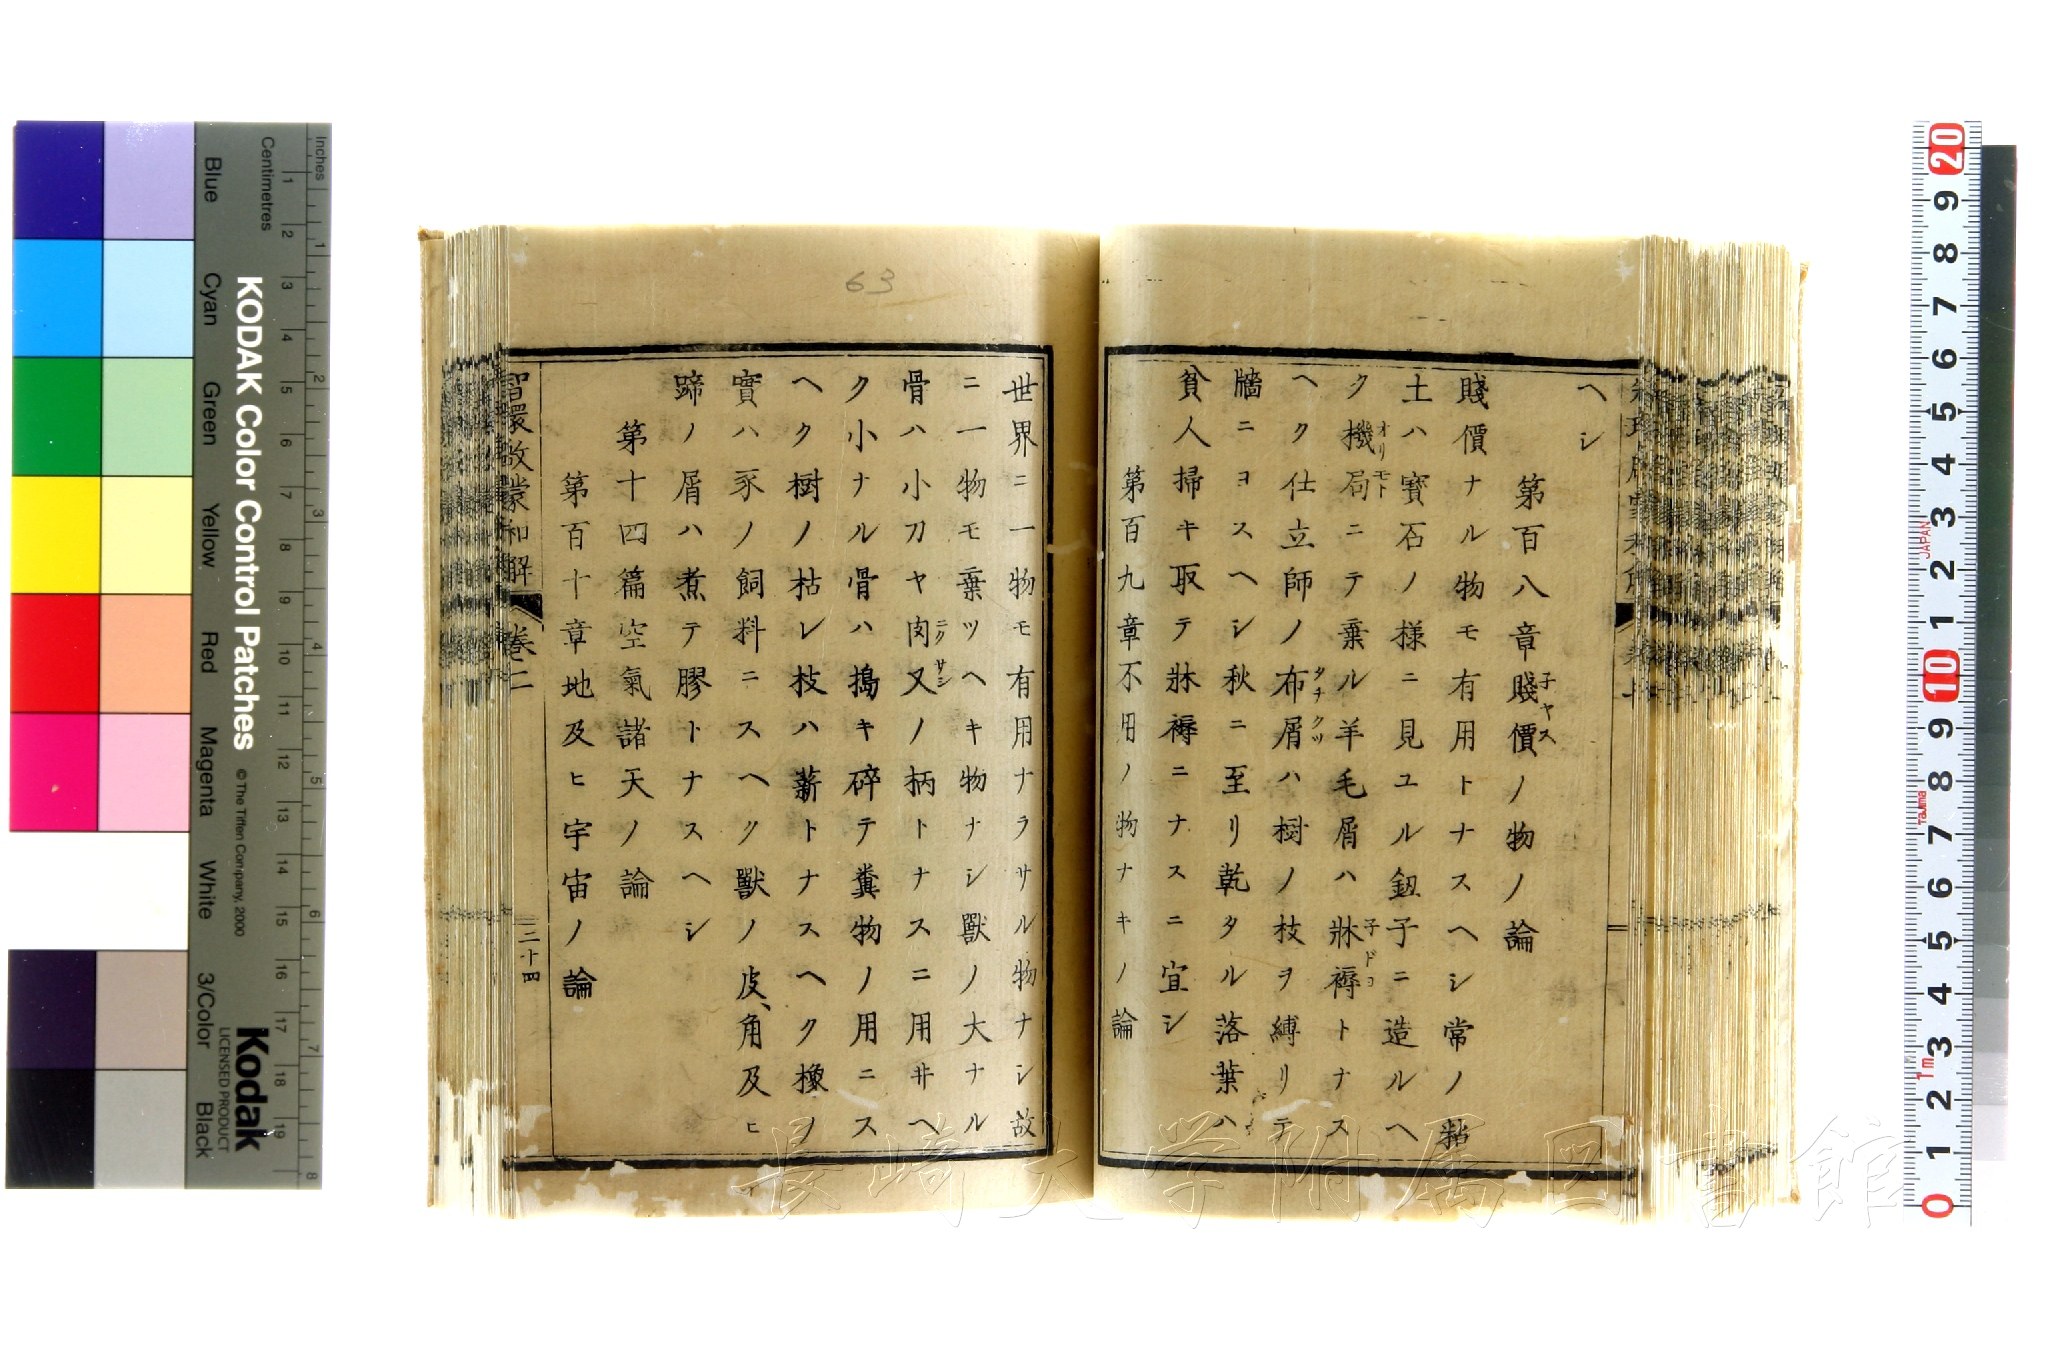 ヘシ
第百八章賤價ノ物ノ論
子ヤス
賤價ナル物モ有用トナスヘシ常ノ粘
土ハ寳石ノ様ニ見ユル釼子ニ造ルヘ
ク機局ニテ棄ル羊毛屑ハ牀褥トナス
オリモト
子ドコ
ヘク仕立師ノ布屑ハ樹ノ枝ヲ縛リテ
タチクツ
牆ニヨスヘシ秋ニ至リ乾タル落葉ハ
貧人掃キ取テ牀褥ニナスニ宜シ
第百九章不用ノ物ナキノ論
世界ニ一物モ有用ナラサル物ナシ故
ニ一物モ棄ツヘキ物ナシ獸ノ大ナル
骨ハ小刀ヤ肉叉ノ柄トナスニ用井ヘ
ニクサシ
ク小ナル骨ハ搗キ碎テ糞物ノ用ニス
ヘク樹ノ枯レ枝ハ薪トナスヘク橡ノ
實ハ豕ノ飼料ニスヘク獸ノ皮、角及ヒ
蹄ノ屑ハ煮テ膠トナスヘシ
第十四篇空氣諸天ノ論
第百十章地及ヒ宇宙ノ論
智環啟蒙和解 卷二
三十四
63
長崎大学附属図書館
KODAK Color Control Patches
© The Tiffen Company, 2000
Kodak
LICENSED PRODUCT
Inches
Centimetres
1 2 3 4 5 6 7 8 9 10 11 12 13 14 15 16 17 18 19
1 2 3 4 5 6 7 8
Blue
Cyan
Green
Yellow
Red
Magenta
White
3/Color
Black
20 9 8 7 6 5 4 3 2 1 10 9 8 7 6 5 4 3 2 1 0
JAPAN
Tajima
1m